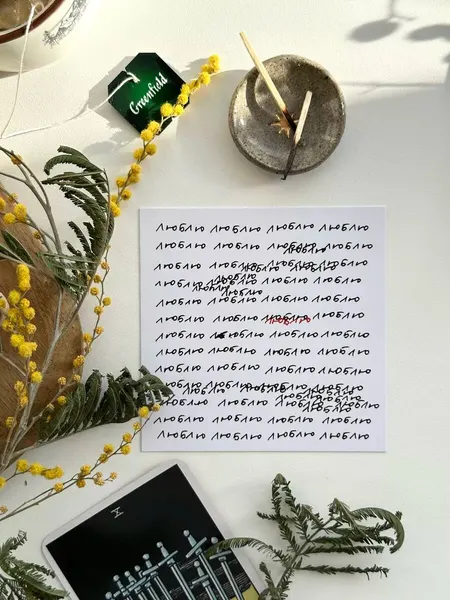 Greenfield
люблю люблю люблю люблю
люблю люблю люблю люблю
люблю люблю люблю люблю люблю люблю
люблю люблю люблю люблю люблю люблю
люблю люблю люблю люблю
люблю люблю люблю люблю люблю
люблю люблю люблю люблю
люблю люблю люблю люблю
люблю люблю люблю люблю
люблю люблю люблю люблю
люблю люблю люблю люблю люблю
люблю люблю люблю люблю
люблю люблю люблю люблю